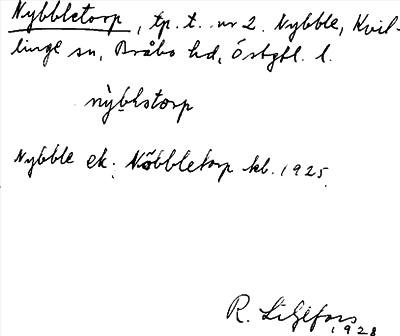 Nybbletorp, tp. t. nr 2. Nybble, Kvil-
linge sn, Bråbo hd, Östgtl. l.
nỳbḷstorp
Nybble ek. Nöbbletorp kb. 1925.
R. Liljefors
1928